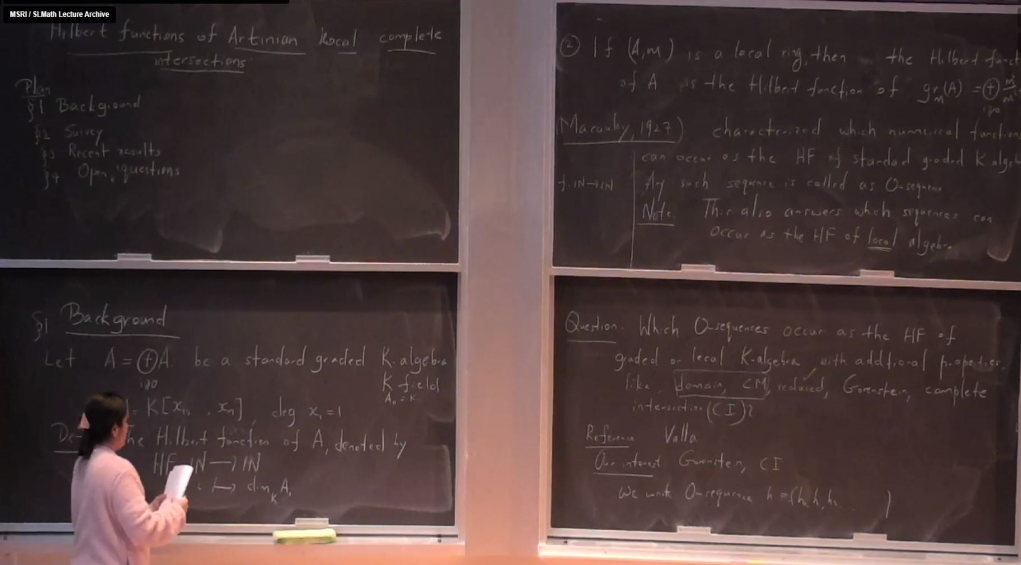 MSRI / SLMath Lecture Archive
Hilbert functions of Artinian local complete
intersections
Plan
§1 Background
§2 Survey
§3 Recent results
§4 Open questions
§1 Background
Let A = ⊕A be a standard graded K-algebra
i≥0
K field
A₀ = K
= K[x₁, , xₙ], deg xᵢ = 1
the Hilbert function of A, denoted by
HF IN → IN
i ↦ dim_K Aᵢ
② If (A, m) is a local ring, then the Hilbert funct
of A is the Hilbert function of gr_m(A) = ⊕
i≥0
(Macaulay, 1927) characterized which numerical function
can occur as the HF of standard graded K alge
f: IN→IN
Any such sequence is called as O-sequence
Note This also answers which sequences can
occur as the HF of local algebra
Question: Which O-sequences occur as the HF of
graded or local K-algebra with additional properties
like domain, CM, reduced, Gorenstein, complete
intersection (CI)?
Reference Valla
Our interest Gorenstein, CI
We write O-sequence h = (h₀ h₁ h₂ ... )